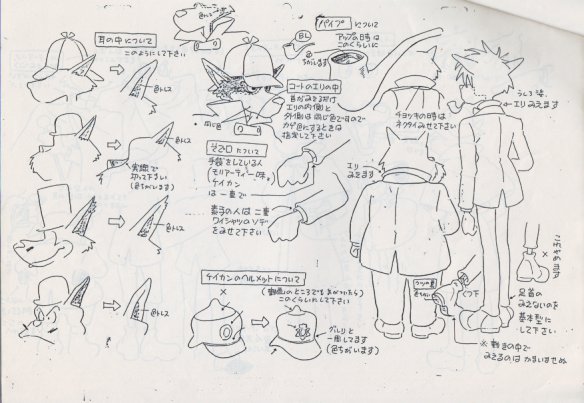 耳の中について
このようにして下さい
色トレス
色トレス
実線で
切って下さい
(色ちがいます)
色トレス
色トレス
パイプについて
アップの時は
このくらいに
BL
色
ちがいます
コートのエリの中
首がみえるだけ
エリの内側と
外側は同じ色ですので
カゲ色にするときは
指定して下さい
ソデ口について
手袋をしている人
(モリアーティー一味、
ケイカン
は一重で
素手の人は二重
ワイシャツのソデ
をみせて下さい
ケイカンのヘルメットについて
×
このくらいにして下さい
グルリと
一周してます
(色ちがいます)
チョッキの時は
ネクタイみせて下さい
うしろ姿、
エリみえます
エリ
みえます
くつ下
×
足首の
みえないのを
基本型に
して下さい
※動きの中で
みえるのはかまいませぬ